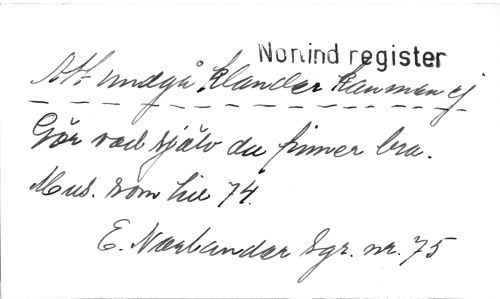 Norlind register
Att undgå klander kan man ej
Gör vad själv du finner bra.
Mus. som hie 74.
E. Næsbander Sgr. nr. 75